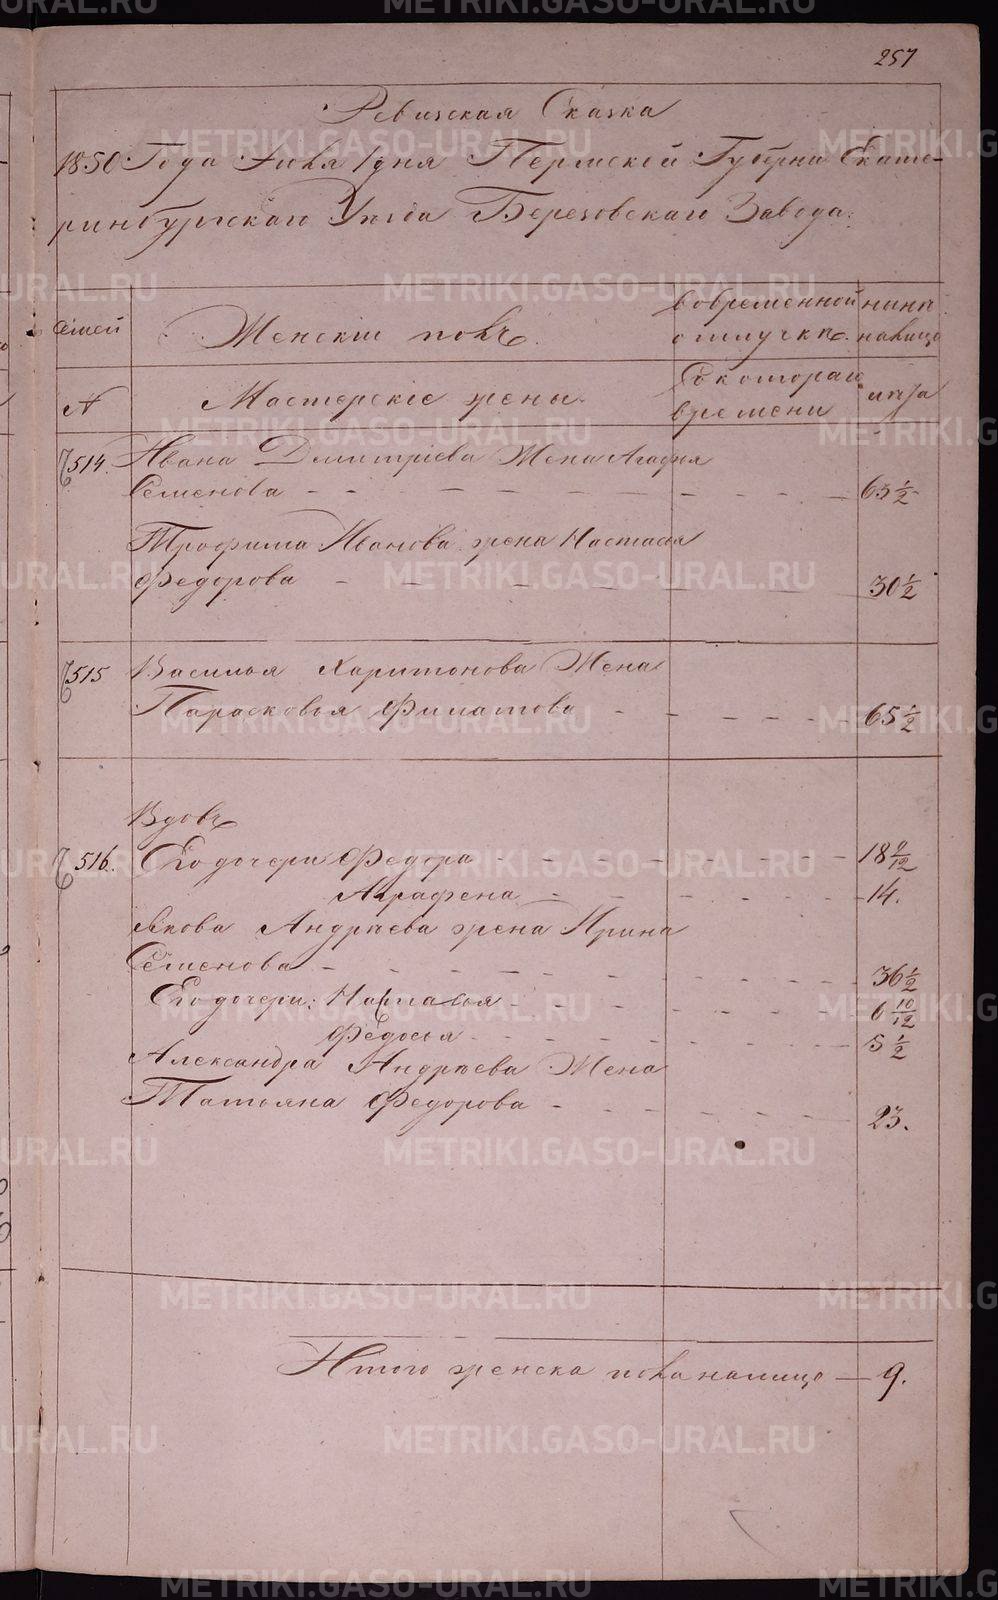 257
Ревизская Сказка
1850 Года Июня 1 дня Пермской Губернiи Екате-
ринбургскаго Уѣзда Березовскаго Завода.
Семей
Женскiй полъ.
Во временной
отлучкѣ.
нынѣ
налицо
№
Мастерскiе жены.
Съ котораго
времени
лѣта
514.
Ивана Дмитрiева Жена Агафья
Семенова - - - 65 1/2
Трофима Иванова жена Настасья
Федорова - - - 30 1/2
515
Василья Харитонова Жена
Парасковья Филатова - - - 65 1/2
Вдовъ
516.
Его дочери Федора - - - 18 9/12
Аграфена - - - 14.
Якова Андрѣева жена Ирина
Семенова - - - 36 1/2
Его дочери: Настасья - - - 6 10/12
Федосья - - - 5 1/2
Александра Андрѣева Жена
Татьяна Федорова - - - 23.
Итого женска пола налицо — 9.
METRIKI.GASO-URAL.RU